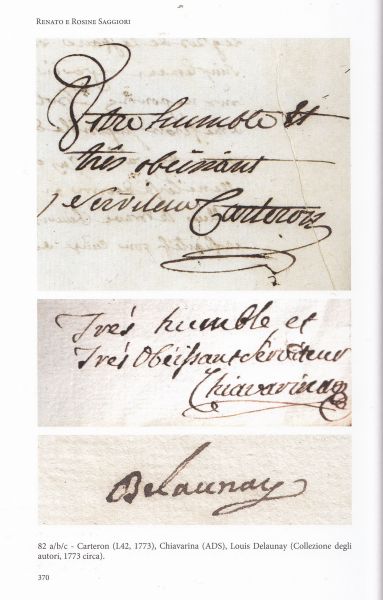 Renato e Rosine Saggiori
Votre humble et
très obéissant
serviteur Carteron
Très humble et
Très Obéissant Serviteur
Chiavarina
Delaunay
82 a/b/c - Carteron (L42, 1773), Chiavarina (ADS), Louis Delaunay (Collezione degli
autori, 1773 circa).
370